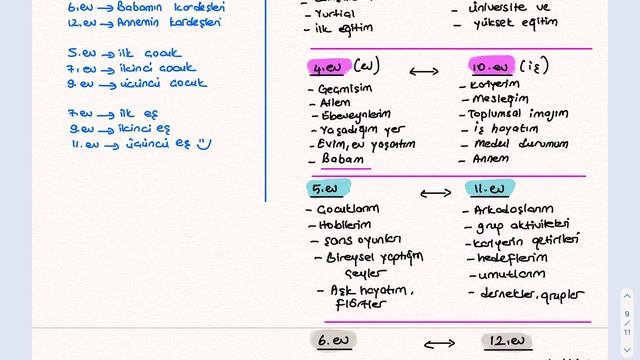 6.ev → Babamın kardeşleri
12.ev → Annemin kardeşleri
5.ev → ilk çocuk
7.ev → ikinci çocuk
9.ev → üçüncü çocuk
7.ev → ilk eş
9.ev → ikinci eş
11.ev → üçüncü eş
- Yurtiçi
- ilk eğitim
üniversite ve
yüksek eğitim
4.ev (ev) ↔ 10.ev (iş)
- Geçmişim
- Ailem
- Ebeveynlerim
- Yaşadığım yer
- Evim, ev yaşantım
- Babam
- Kariyerim
- Mesleğim
- Toplumsal imajım
- iş hayatım
- Medeni durumum
- Annem
5.ev ↔ 11.ev
- Çocuklarım
- Hobilerim
- Şans oyunları
- Bireysel yaptığım
şeyler
- Aşk hayatım,
Flörtler
- Arkadaşlarım
- grup aktiviteleri
- kariyerin getirileri
- hedeflerim
- umutlarım
- dernekler, gruplar
6.ev ↔ 12.ev
9
/
11